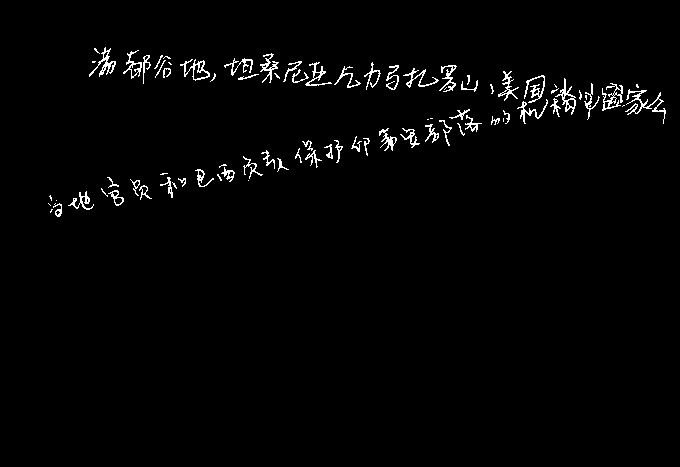 满都谷地,坦桑尼亚乞力马扎罗山,美国国家公
当地官员和巴西负责保护印第安部落的机